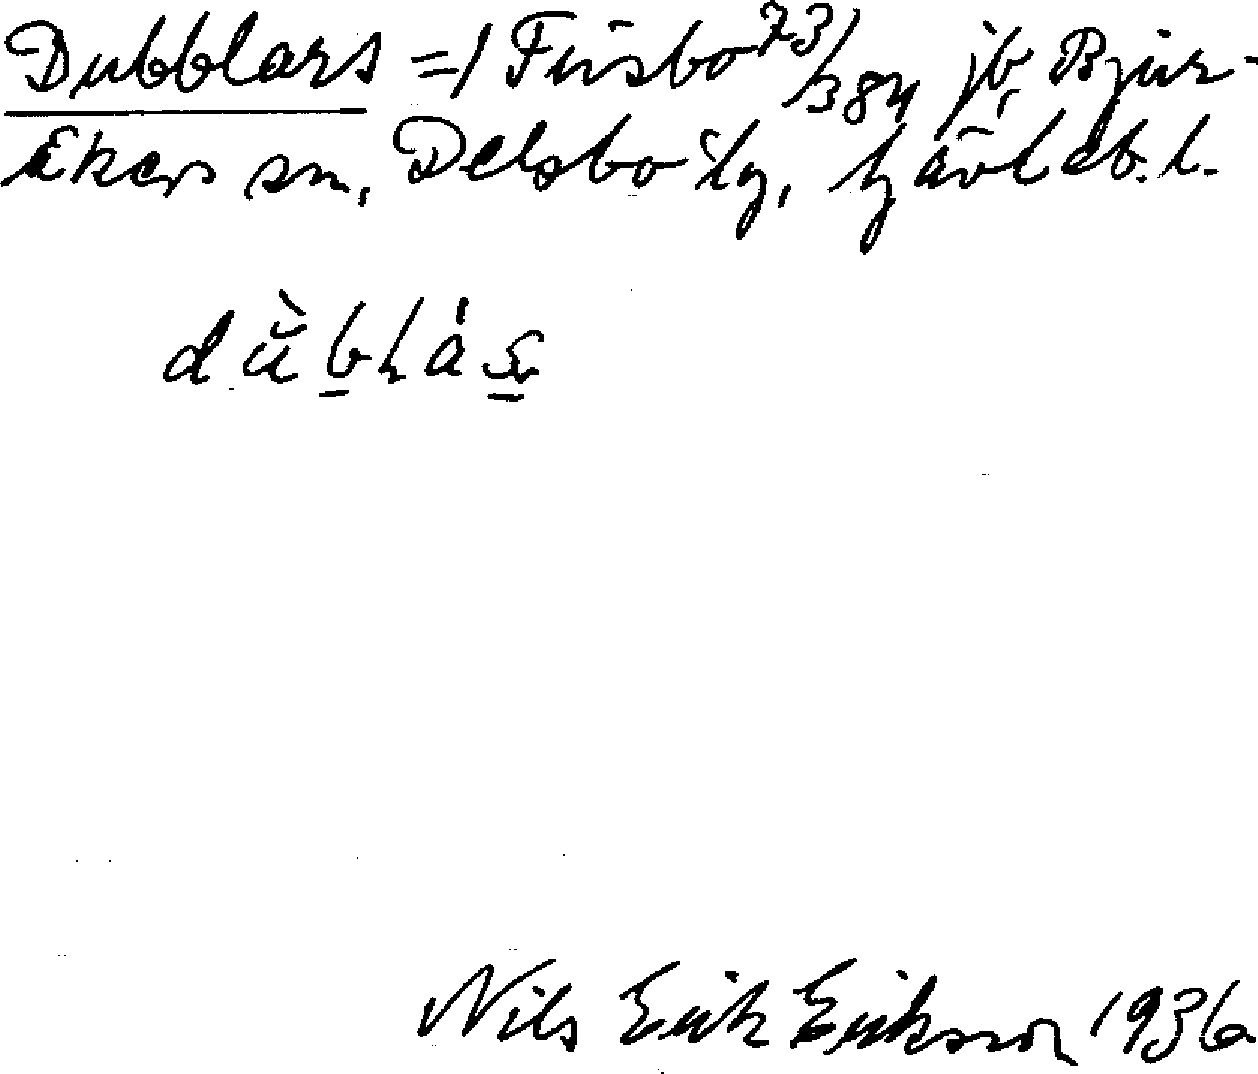 Dubblars = 1 Furubo 73/384 jb, Bjur-
åkers sn, Delsbo tg, Gävleb. l.
dù̆blás
Nils Erik Eriksson 1936